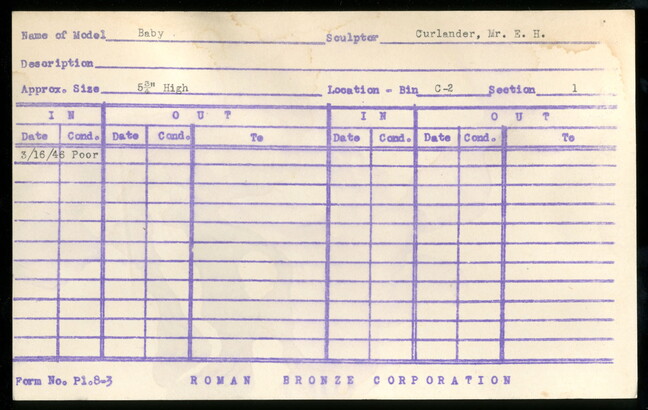 Name of Model Baby Sculptor Curlander, Mr. E. H.
Description
Approx. Size High Location - Bin C-2 Section 1
IN OUT IN OUT
Date Cond. Date Cond. To Date Cond. Date Cond. To
3/16/46 Poor
Form No. P1.8-3 ROMAN BRONZE CORPORATION